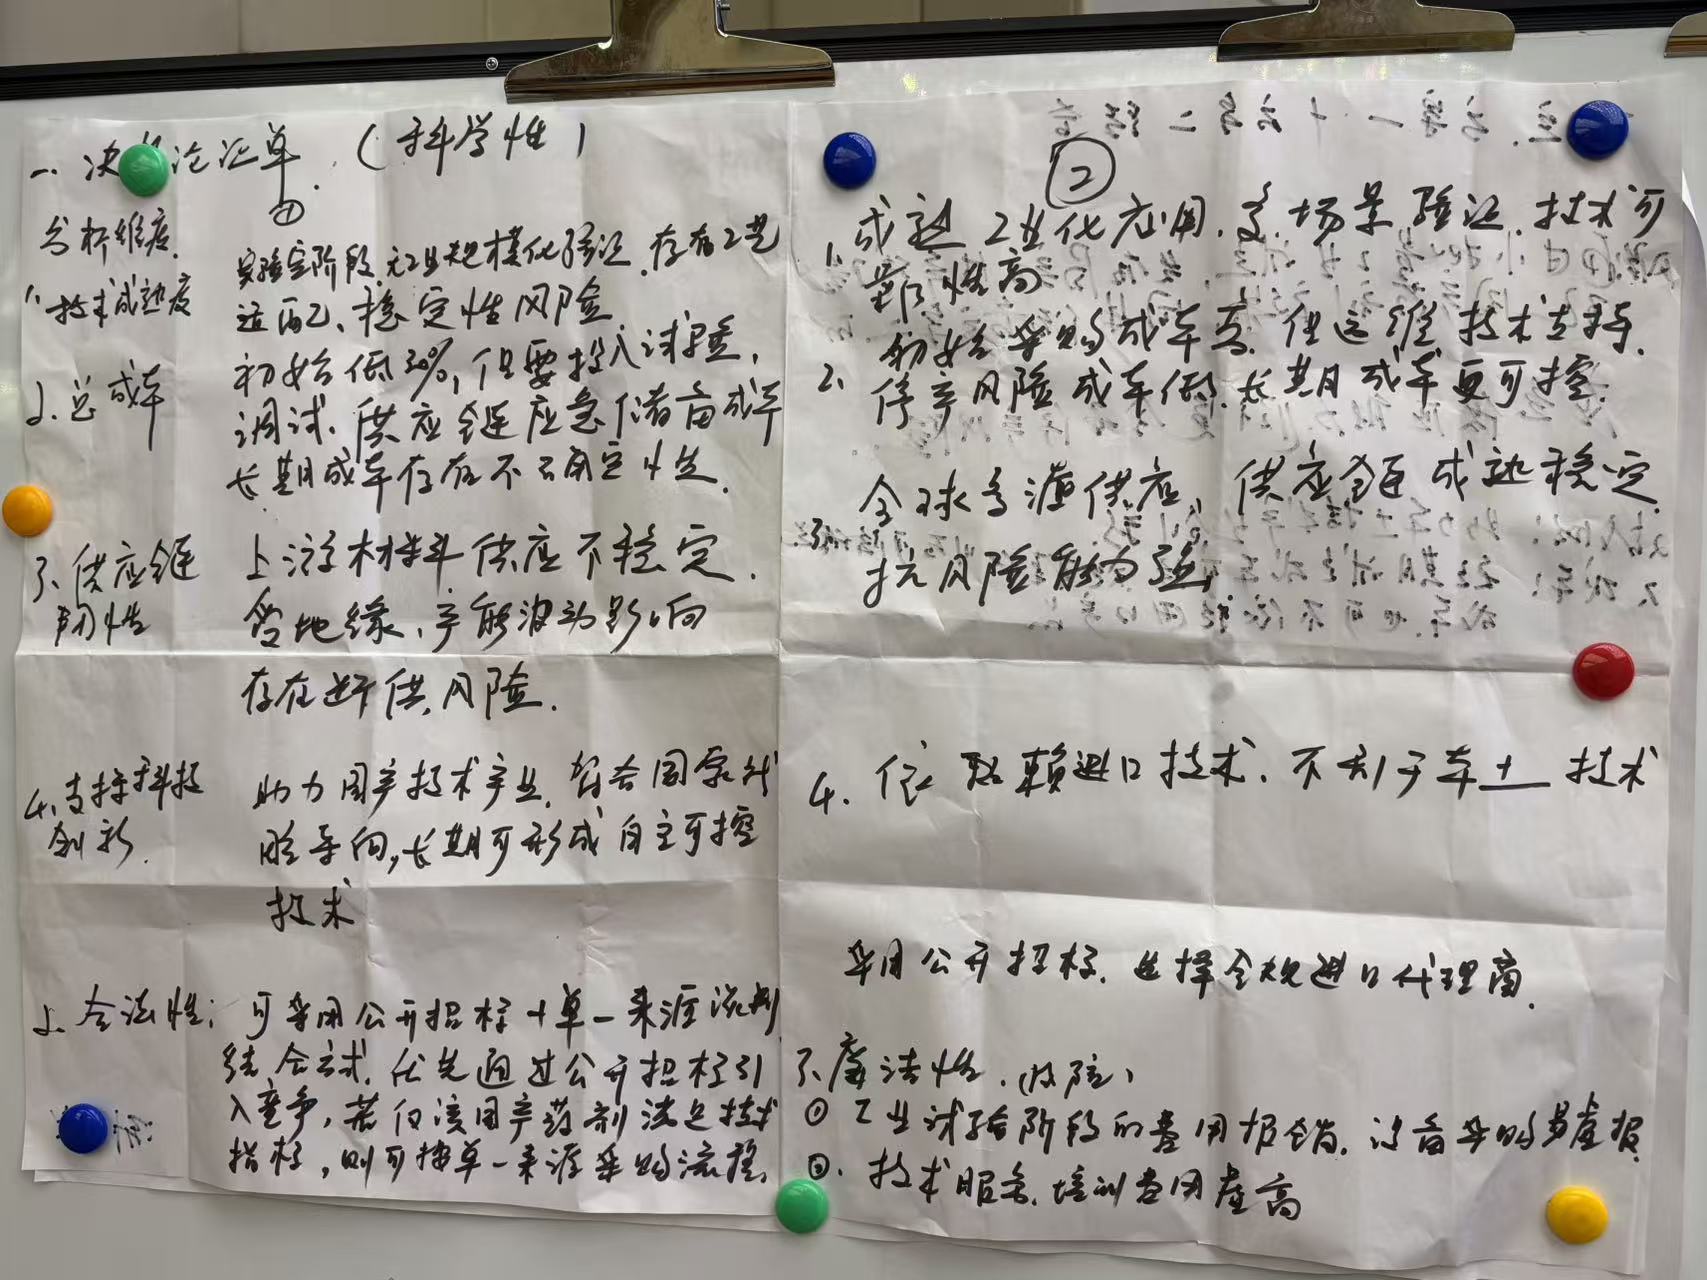 一、决论证单.（科学性）
①
分析维度.
1、技术成熟度
实验室阶段,无工业规模化验证,存在工艺
适配、稳定性风险
2、总成本
初始低30%,但要投入试验、
调试、供应链应急储备成本
长期成本存在不确定性.
3、供应链
韧性
上游材料供应不稳定.
受地缘、产能波动影响
存在断供风险.
4、支持科技
创新.
助力国产技术产业,符合国家战
略导向,长期可形成自主可控
技术
5、合法性:
可采用公开招标+单一来源谈判
结合方式.优先通过公开招标引
入竞争,若仅该国产药剂满足技术
指标,则可按单一来源采购流程.
②
1、成熟工业化应用.多场景验证.技术可
靠性高
2、初始采购成本高.但运维技术支持.
停产风险成本低.长期成本更可控.
3、全球多源供应、供应链成熟稳定.
抗风险能力强
4、依赖进口技术、不利于本土技术
采用公开招标.选择合规进口代理商.
廉洁性.(风险)
① 工业试验阶段的费用报销.设备采购易虚报.
②、技术服务.培训费用虚高